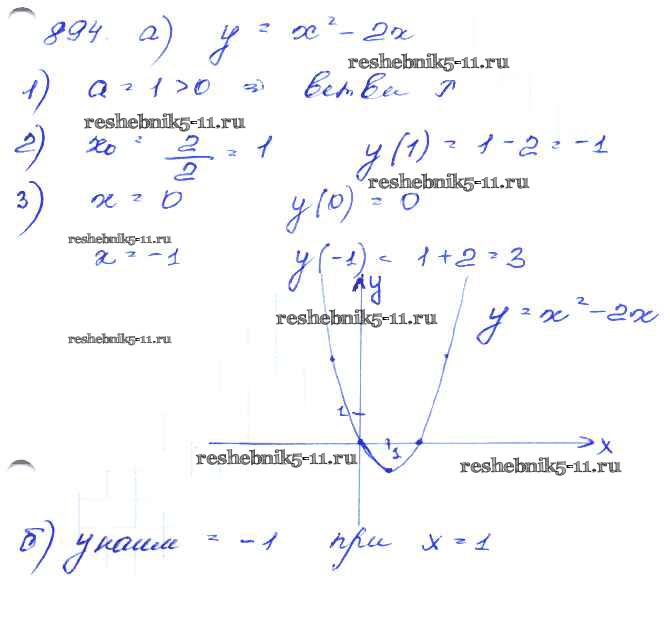 894. а) y = x² - 2x
reshebnik5-11.ru
1) a = 1 > 0 ⇒ ветви ↑
reshebnik5-11.ru
2) x₀ = 2/2 = 1 y(1) = 1 - 2 = -1
reshebnik5-11.ru
3) x = 0 y(0) = 0
reshebnik5-11.ru
x = -1 y(-1) = 1 + 2 = 3
y
reshebnik5-11.ru
y = x² - 2x
reshebnik5-11.ru
1
1 x
reshebnik5-11.ru reshebnik5-11.ru
б) y наим = -1 при x = 1